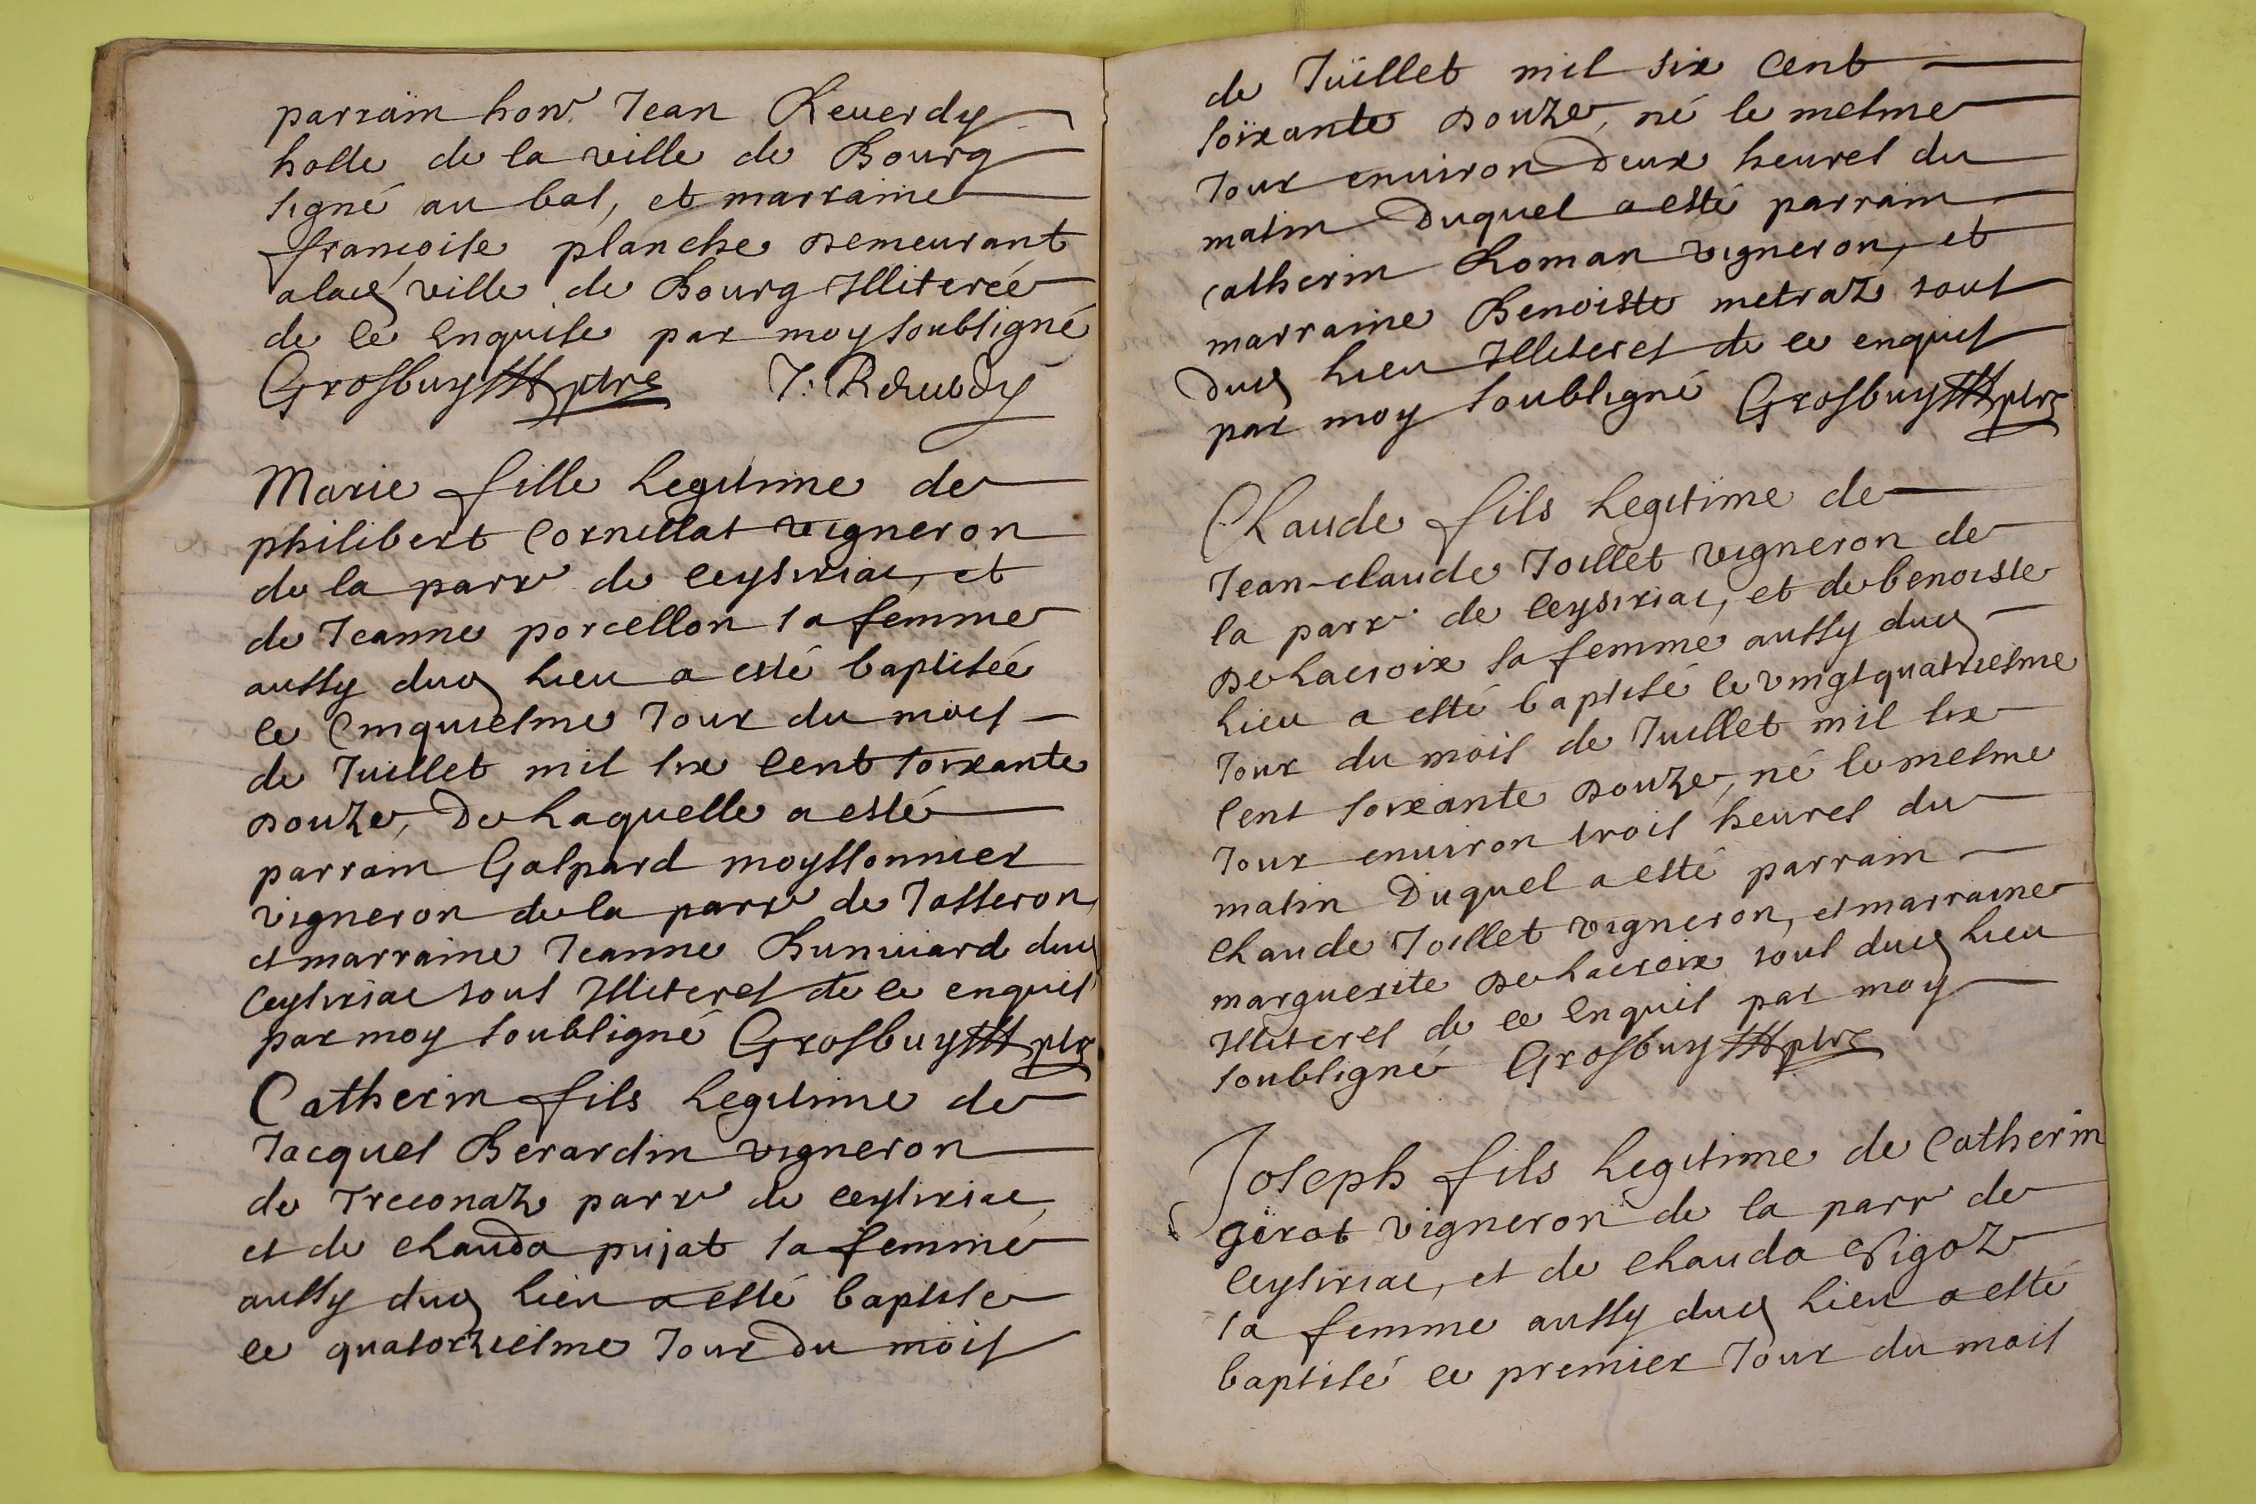 parrain hon.^e Jean Reuerdy
hoste de la ville de Bourg
signé au bas, et marraine
francoise planche demeurant
alad ville de Bourg Illiterée
de ce Enquise par moy soubsigné
Grosbuy ptre J: Reuerdy
Marie fille Legitime de
philibert Cornillat vigneron
de la parr^e de Ceysiriac, et
de Jeanne porcellon sa femme
aussy dud Lieu a esté baptisée
le Cinquiesme Jour du mois
de Juillet mil six Cent soixante
douze, De Laquelle a esté
parrain Gaspard moyssonnier
vigneron de la parr^e de Jasseron,
et marraine Jeanne Buniuard dud
Ceysiriac tous Illiteres de ce enquis
par moy soubsigné Grosbuy ptre
Catherin fils Legitime de
Jacques Berardin vigneron
de Treconaz parr^e de Ceysiriac
et de Clauda pujat sa femme
aussy dud Lieu a esté baptise
le quatorziesme Jour Du mois
de Juillet mil six Cent
soixante douze, né le mesme
Jour enuiron Deux heures du
matin Duquel a esté parrain
Catherin Roman vigneron, et
marraine Benoiste metraz tous
Dud Lieu Illiteres de ce enquis
par moy soubsigné Grosbuy ptre
Claude fils Legitime de
Jean-claude Joillet vigneron de
la parr^e de Ceysiriac, et de benoiste
De Lacroix sa femme aussy dud
Lieu a esté baptisé le vingt quatriesme
Jour du mois de Juillet mil six
Cent soixante douze, né le mesme
Jour enuiron trois heures du
matin Duquel a esté parrain
Claude Joillet vigneron, et marraine
marguerite De Lacroix tous dud Lieu
Illiteres de ce Enquis par moy
soubsigné Grosbuy ptre
Joseph fils Legitime de Catherin
girot vigneron de la parr^e de
Ceysiriac, et de Clauda Pigoz
sa femme aussy dud Lieu a esté
baptisé le premier Jour du mois